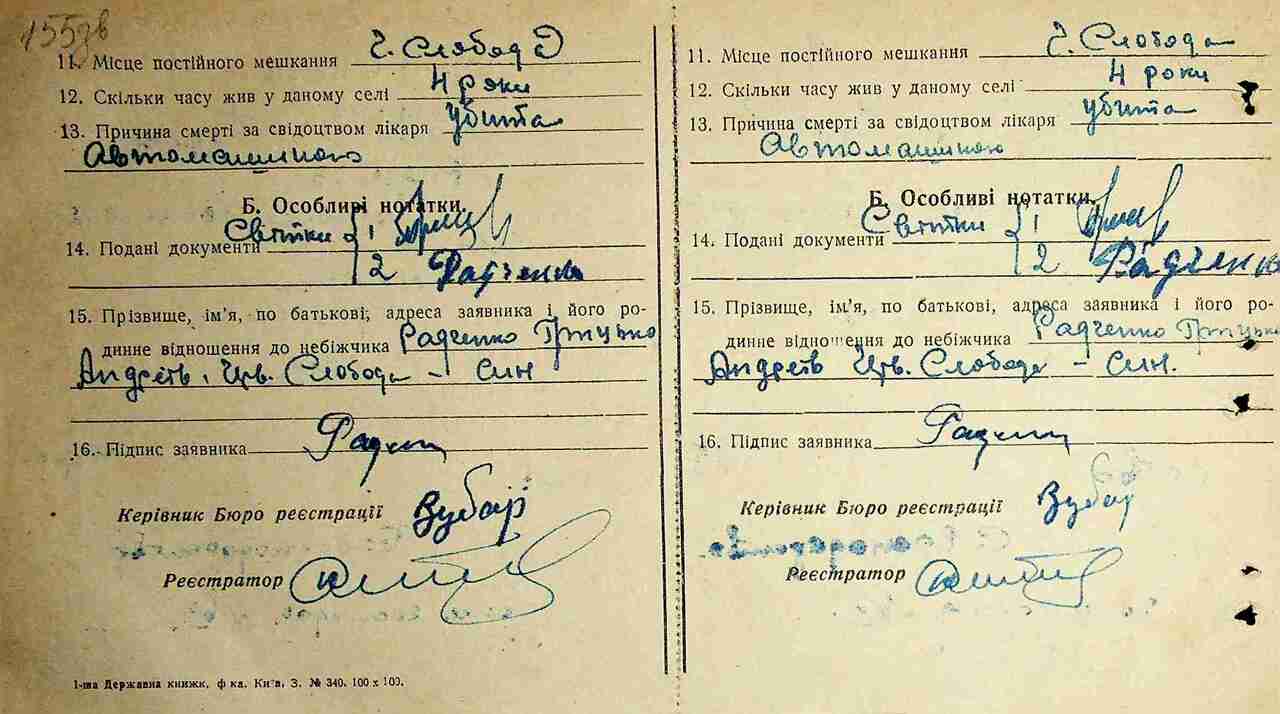 155зв
11. Місце постійного мешкання Ч. Слобода
12. Скільки часу жив у даному селі 4 роки
13. Причина смерті за свідоцтвом лікаря убита
Автомашиною
Б. Особливі нотатки.
14. Подані документи Свідки 1
2 Радченко
15. Прізвище, ім'я, по батькові, адреса заявника і його ро-
динне відношення до небіжчика Радченко Грицько
Андреев. Чрв. Слобода - Син
16. Підпис заявника
Керівник Бюро реєстрації Зубар
Реєстратор
1-ша Державна книжк. ф-ка. Київ, З. № 340. 100 x 100.
11. Місце постійного мешкання Ч. Слобода
12. Скільки часу жив у даному селі 4 роки
13. Причина смерті за свідоцтвом лікаря убита
Автомашиною
Б. Особливі нотатки.
14. Подані документи Свідки 1
2 Радченко
15. Прізвище, ім'я, по батькові, адреса заявника і його ро-
динне відношення до небіжчика Радченко Грицько
Андреев Чрв. Слобода - Син.
16. Підпис заявника
Керівник Бюро реєстрації Зубар
Реєстратор